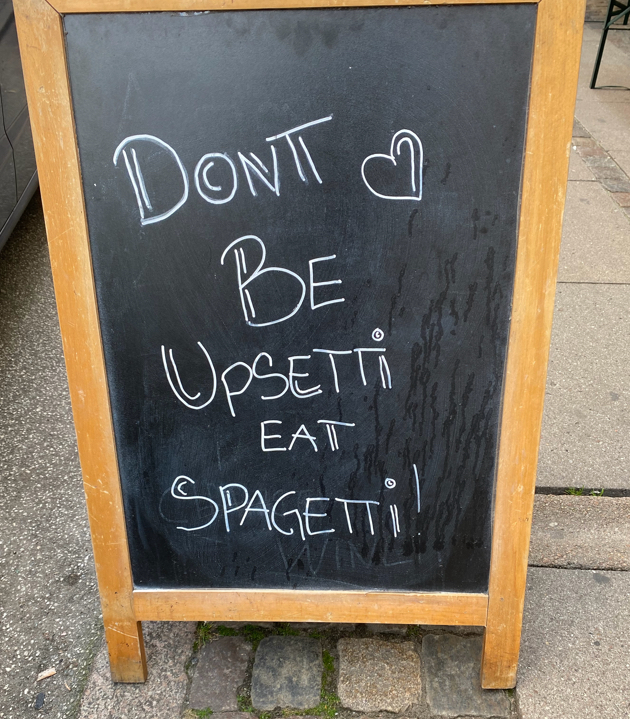 DONT ♡
BE
UPSETTi
EAT
SPAGETTi!